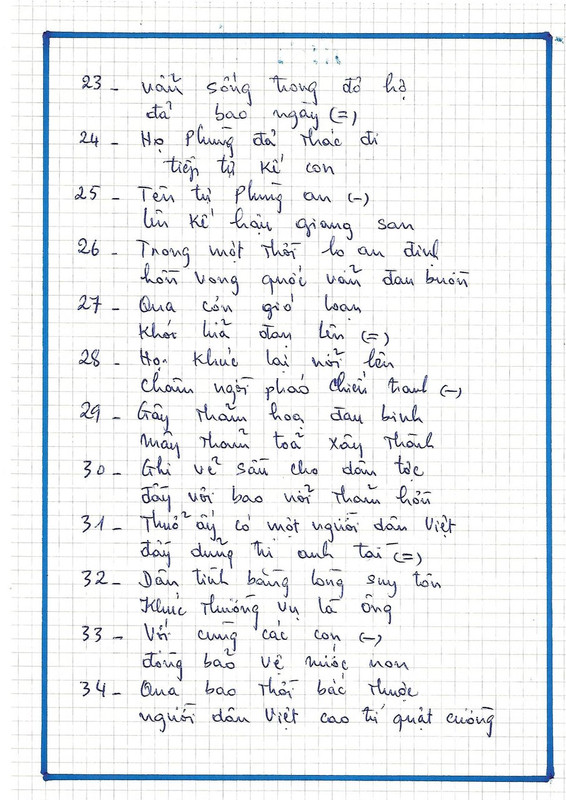 23 - vẫn sống trong đô hộ
đã bao ngày (=)
24 - Họ Phùng đã thác đi
tiếp tự kế con
25 - Tên tự Phùng an (-)
lên kế hậu giang san
26 - Trong một thời lo an định
hồn vong quốc vẫn đau buồn
27 - Qua cơn gió loạn
khói lửa đạn lên (=)
28 - Họ Khúc lại nổi lên
châm ngòi pháo chiến tranh (-)
29 - Gây thảm hoạ đau binh
mây tham toả xây thành
30 - Ghi về sầu cho dân tộc
đầy với bao nỗi thảm hồn
31 - Thuở ấy có một người dân Việt
đầy dũng trị anh tài (=)
32 - Dân tình bằng lòng suy tôn
Khúc Thường vụ là ông
33 - Với cùng các con (-)
đồng bảo vệ nước non
34 - Qua bao thời bắc thuộc
người dân Việt cao trí quật cường